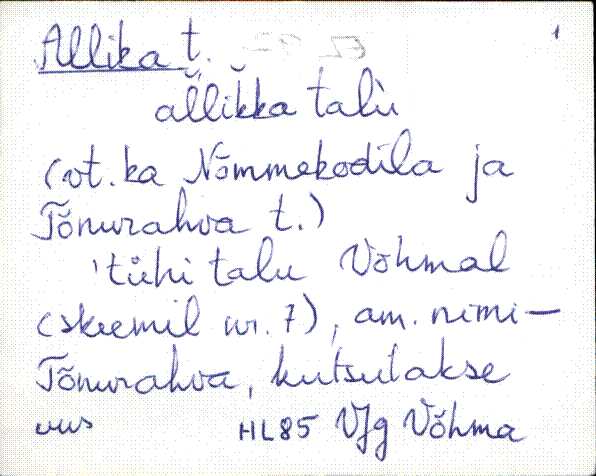 Allika t.
1
al̆lik̆ka talù
(vt. ka Nõmmekodila ja
Tõnurahva t.)
'tühi talu Võhmal
(skeemil nr. 7), am. nimi –
Tõnurahva, kutsutakse
HL85 VJg Võhma